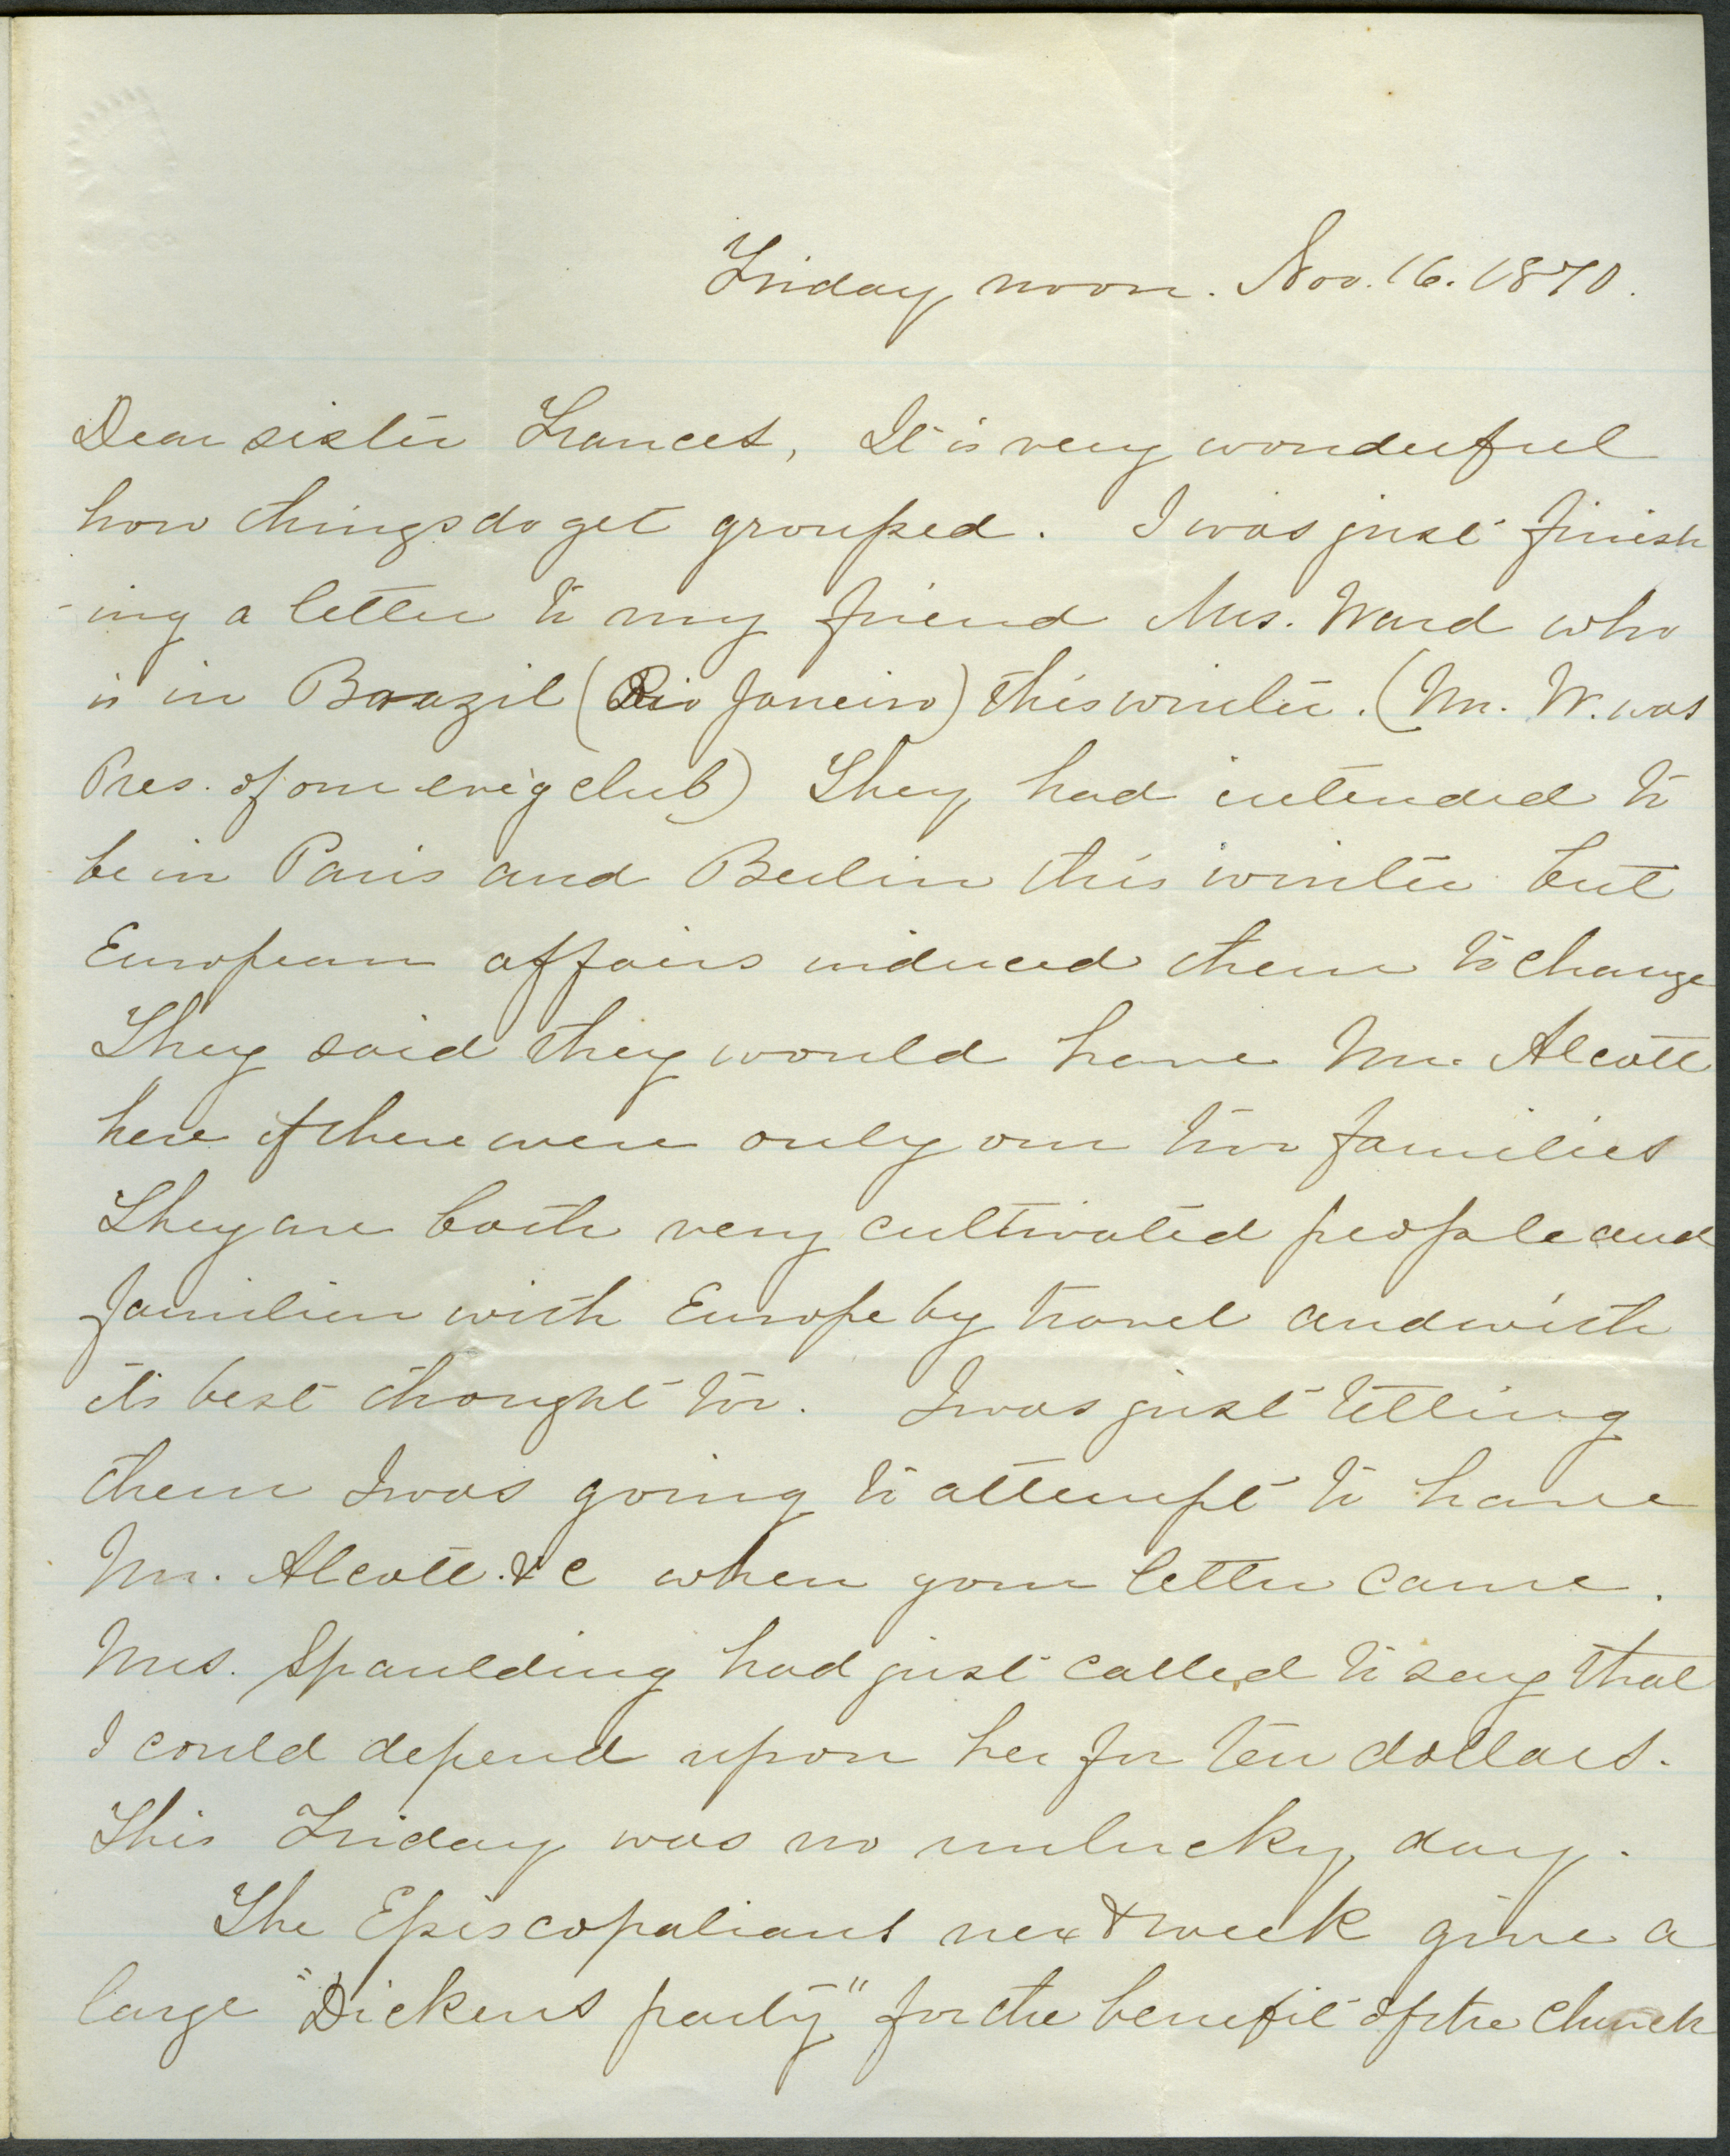 Friday noon. Nov. 16. 1870.
Dear sister Frances, It is very wonderful
how things do get grouped. I was just finish
-ing a letter to my friend Mrs. Ward who
is in Brazil (Rio Janeiro) this winter. (Mr. W. was
Pres. of our eve'g club) They had intended to
be in Paris and Berlin this winter but
European affairs induced them to change
They said they would have Mr. Alcott
here if there were only our two families
They are both very cultivated people and
familiar with Europe by travel and with
its best thought too. I was just telling
them I was going to attempt to have
Mr. Alcott. &c when your letter came.
Mrs. Spaulding had just called to say that
I could depend upon her for ten dollars.
This Friday was no unlucky day.
The Episcopalians next week give a
large "Dickens party" for the benefit of the church